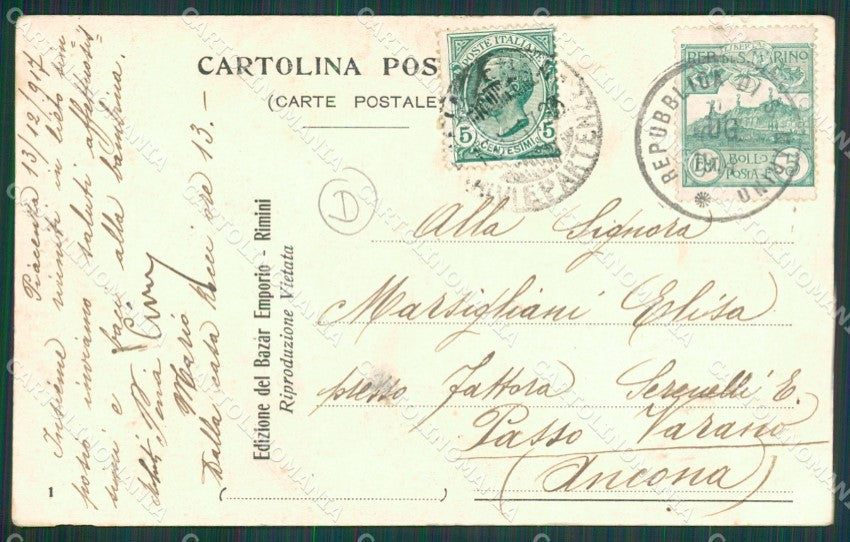 CARTOLINA POS
(CARTE POSTALE)
POSTE ITALIANE
5 5
CENTESIMI
LIBERTAS
REP. DI S. MARINO
BOLLO
POSTALE
5
REPUBBLICA DI S. MARINO
Piacenza 13/12/917
Insieme riuniti in lieto sim=
posio inviamo saluti affettuosis=
simi e baci alla bambina.
Mario
Dalla casa Rocci ore 13. –
Edizione del Bazár Emporio - Rimini
Riproduzione Vietata
Alla Signora
Marsigliani Elisa
presso Fattora Serenelli E.
Passo Varano
(Ancona)
1
CARTOLINOMANIA